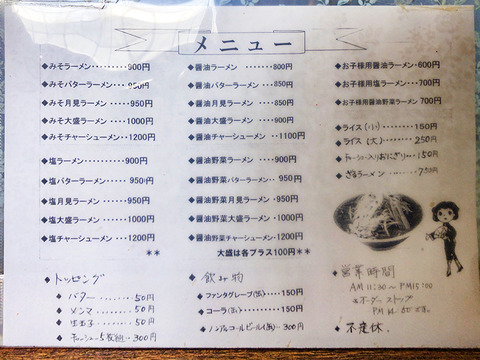 メニュー
◆みそラーメン･････････900円
◆みそバターラーメン･･･850円
◆みそ月見ラーメン･････950円
◆みそ大盛ラーメン････1000円
◆みそチャーシューメン･･1200円
◆塩ラーメン･･････････900円
◆塩バターラーメン････950円
◆塩月見ラーメン･･････950円
◆塩大盛ラーメン･････1000円
◆塩チャーシューメン･･･1200円
＊＊
◆醤油ラーメン ･･････800円
◆醤油バターラーメン ････850円
◆醤油月見ラーメン ････850円
◆醤油大盛ラーメン ････900円
◆醤油チャーシューメン ･･1100円
◆醤油野菜ラーメン ････900円
◆醤油野菜バターラーメン ･･950円
◆醤油野菜月見ラーメン ･･950円
◆醤油野菜大盛ラーメン ･1000円
◆醤油野菜チャーシューメン･･1200円
大盛は各プラス100円＊＊
◆お子様用醤油ラーメン･･600円
◆お子様用塩ラーメン･･･700円
◆お子様用醤油野菜ラーメン 700円
◆ライス(小)･････150円
◆ライス(大)･････250円
◆チャーシュー入りおにぎり･･･150円
◆ざるラーメン････750円
◆トッピング
◆バター････50円
◆メンマ････50円
◆生玉子････50円
◆チャーシュー5枚組･･300円
◆飲み物
◆ファンタグレープ(缶)････150円
◆コーラ(缶)･･････150円
◆ノンアルコールビール(缶)･･300円
◆営業時間
AM 11:30〜PM15:00
オーダーストップ
PM
◆不定休.